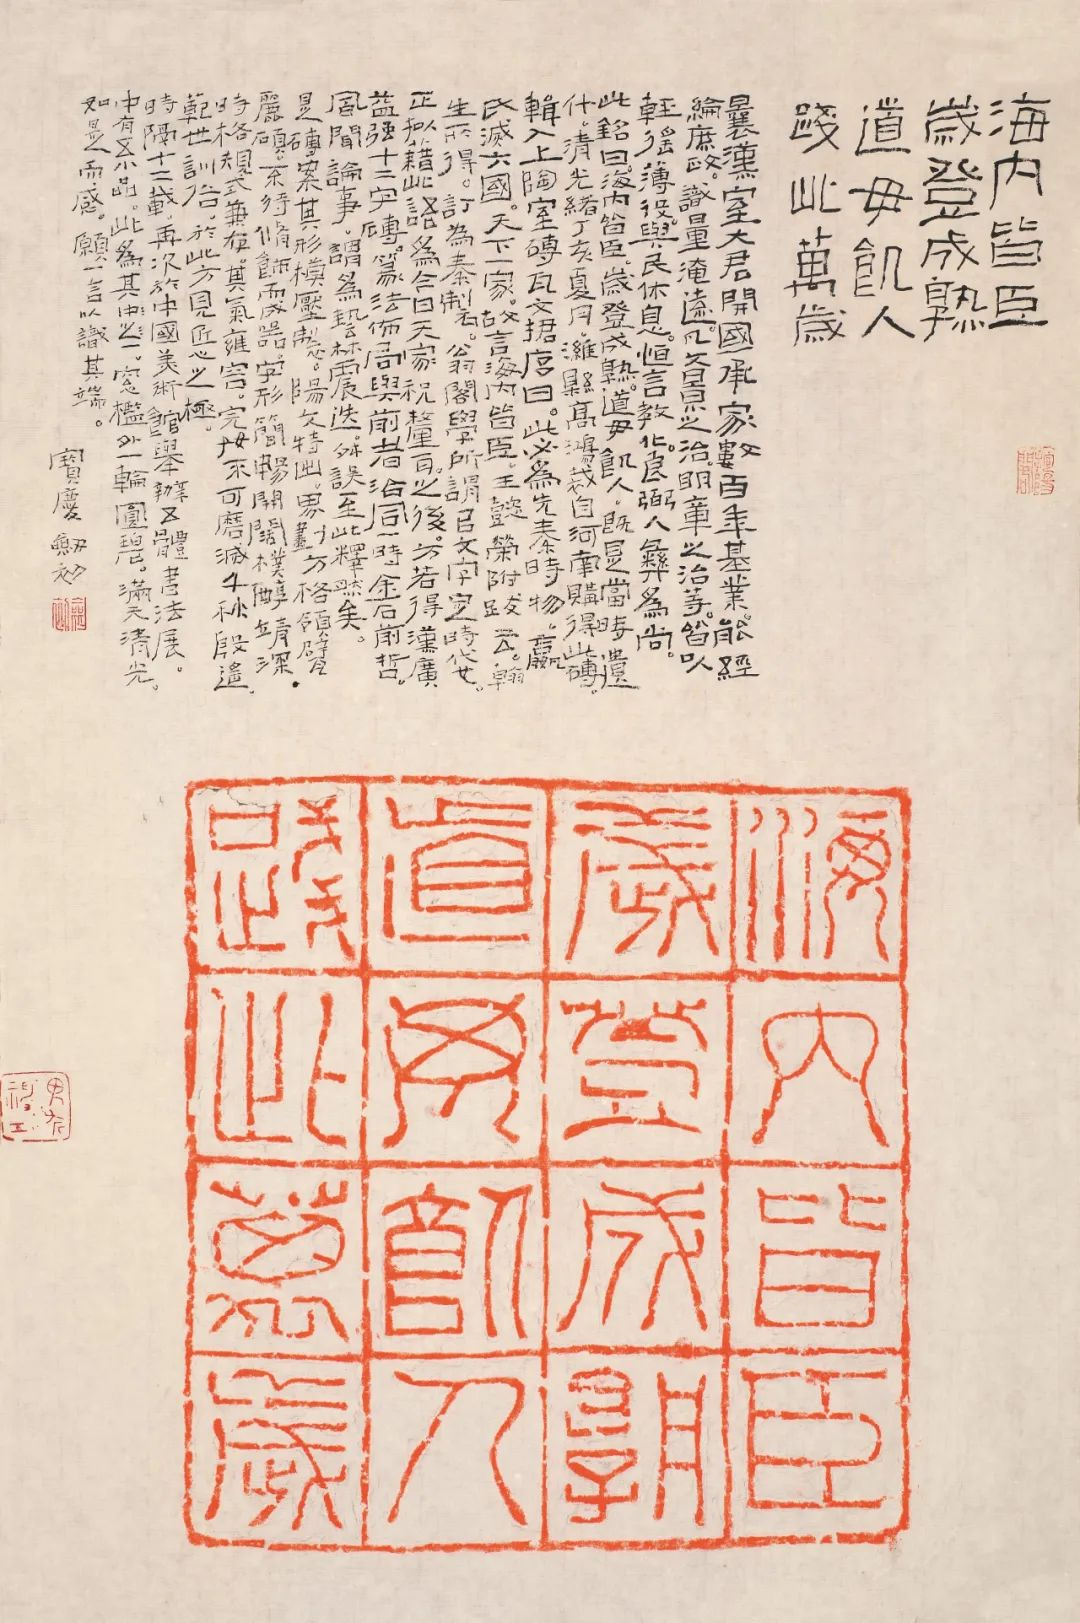 海内皆臣
歲登成熟
道毋飢人
踐此萬歲
曩漢室大君開國承家數百年基業。能經
綸庶政。識量淹遠。凡文景之治。明章之治等。皆以
輕徭薄役。與民休息。恒言教化。良弼人彝為尚。
此銘曰。海内皆臣。歲登成熟。道毋飢人。既是當時遺
什。清光緒丁亥夏月。濰縣高鴻裁自河南購得此磚。
輯入上陶室磚瓦文捃。序曰。此必為先秦時物。嬴
氏滅六國。天下一家。故言海内皆臣。王懿榮附跋云。翰
生所得。訂為秦製。翁閣學所謂因文字定時代女。
正擬藉此語為今日天家祝釐耳。之後。方若得漢廣
益强十二字磚。篆法佈局與前者洽同一時。金石前哲。
風聞論事。謂為藝林展迭。舛誤至此釋然矣。
是磚案其形模壓製。陽文特出。界畫方格。領璧
麗碩。不待脩飾而成器。字形簡暢開闊。樸醇靖深。
時各規式兼存。其氣雍容。完好不可磨滅。千秋段遙。
範世訓俗。於此方見匠心之極。
時隔十二載。再次於中國美術館舉辦五體書法展。
中有五小品。此為其中之一。窓檻外一輪圓碧。滿天清光。
如是而感。願一言以識其端。
寶慶鯽初
海内皆臣
歲登成熟
道毋飢人
踐此萬歲